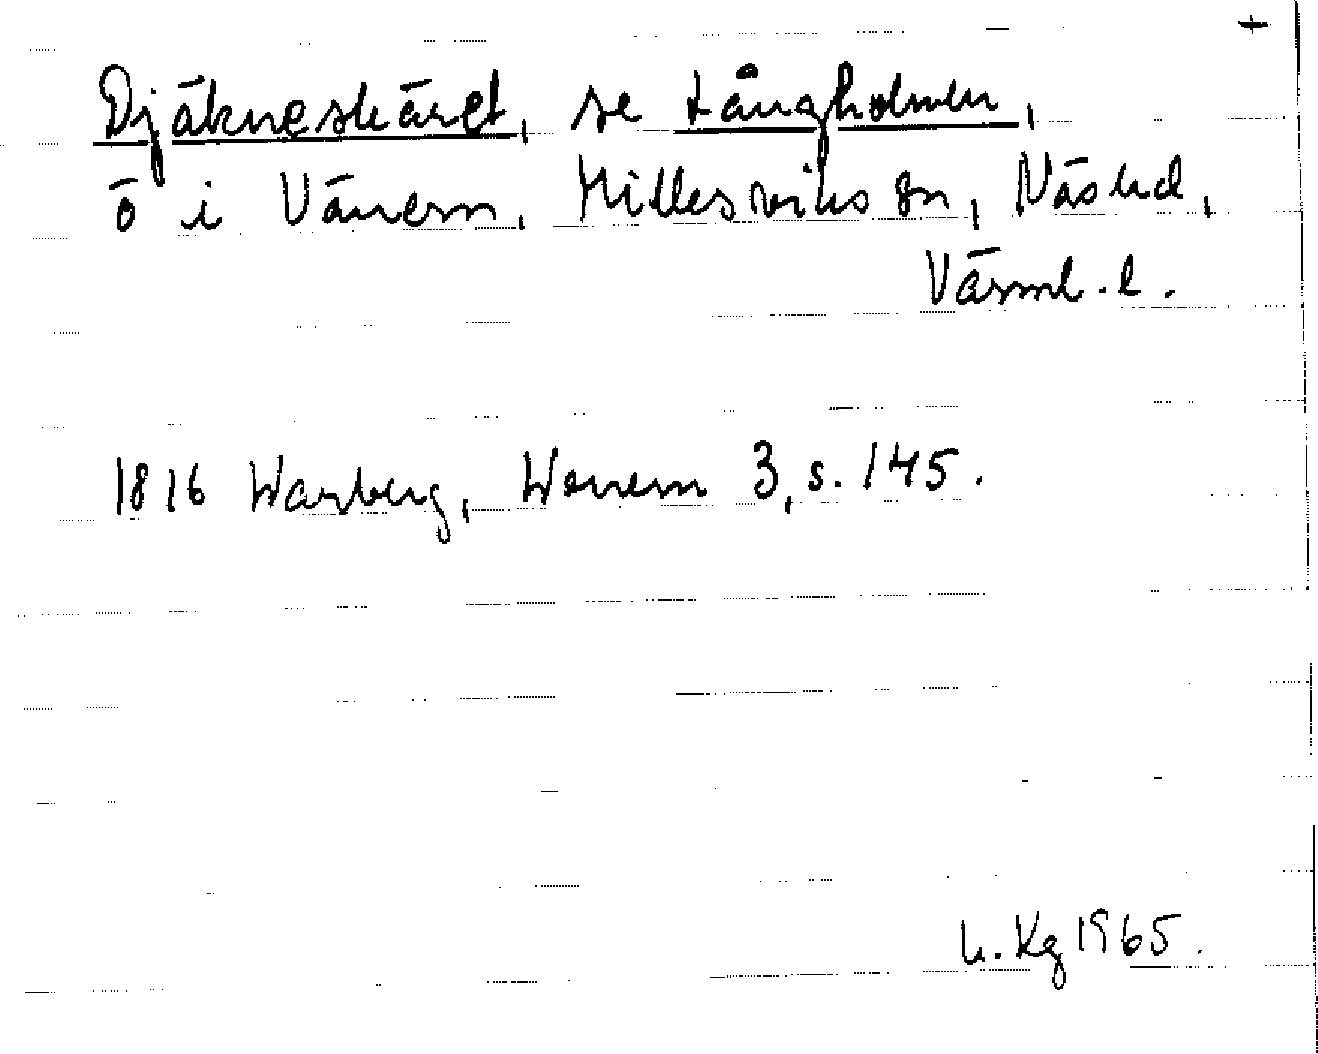 +
Djäkneskäret, se Långholmen,
ö i Vänern, Millesviks sn, Näs hd,
Värml. l.
1816 Warberg, Wenern 3, s. 145.
h. Kg 1965.